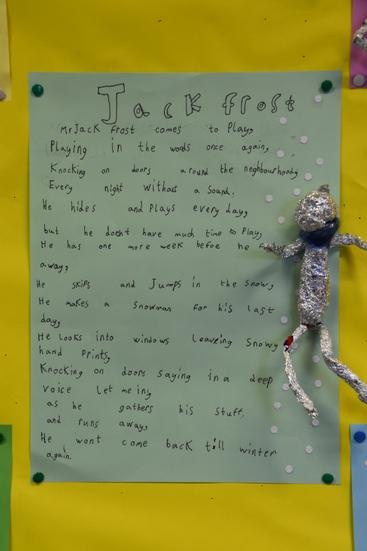 Jack frost
Mr Jack frost comes to Play,
Playing in the words once again,
Knocking on doors around the neighbourhood,
Every night Without a Sound,
He hides and Plays every day,
but he doesnt have much time to Play,
He has one more week befoe he
away,
He skips and Jumps in the snow,
He makes a Snowman for his last
day,
He Looks into windows leaveing Snowy
hand Prints,
Knocking on doors saying in a deep
voice Let me in,
as he gathers his stuff,
and runs away,
He wont come back till winter
again.